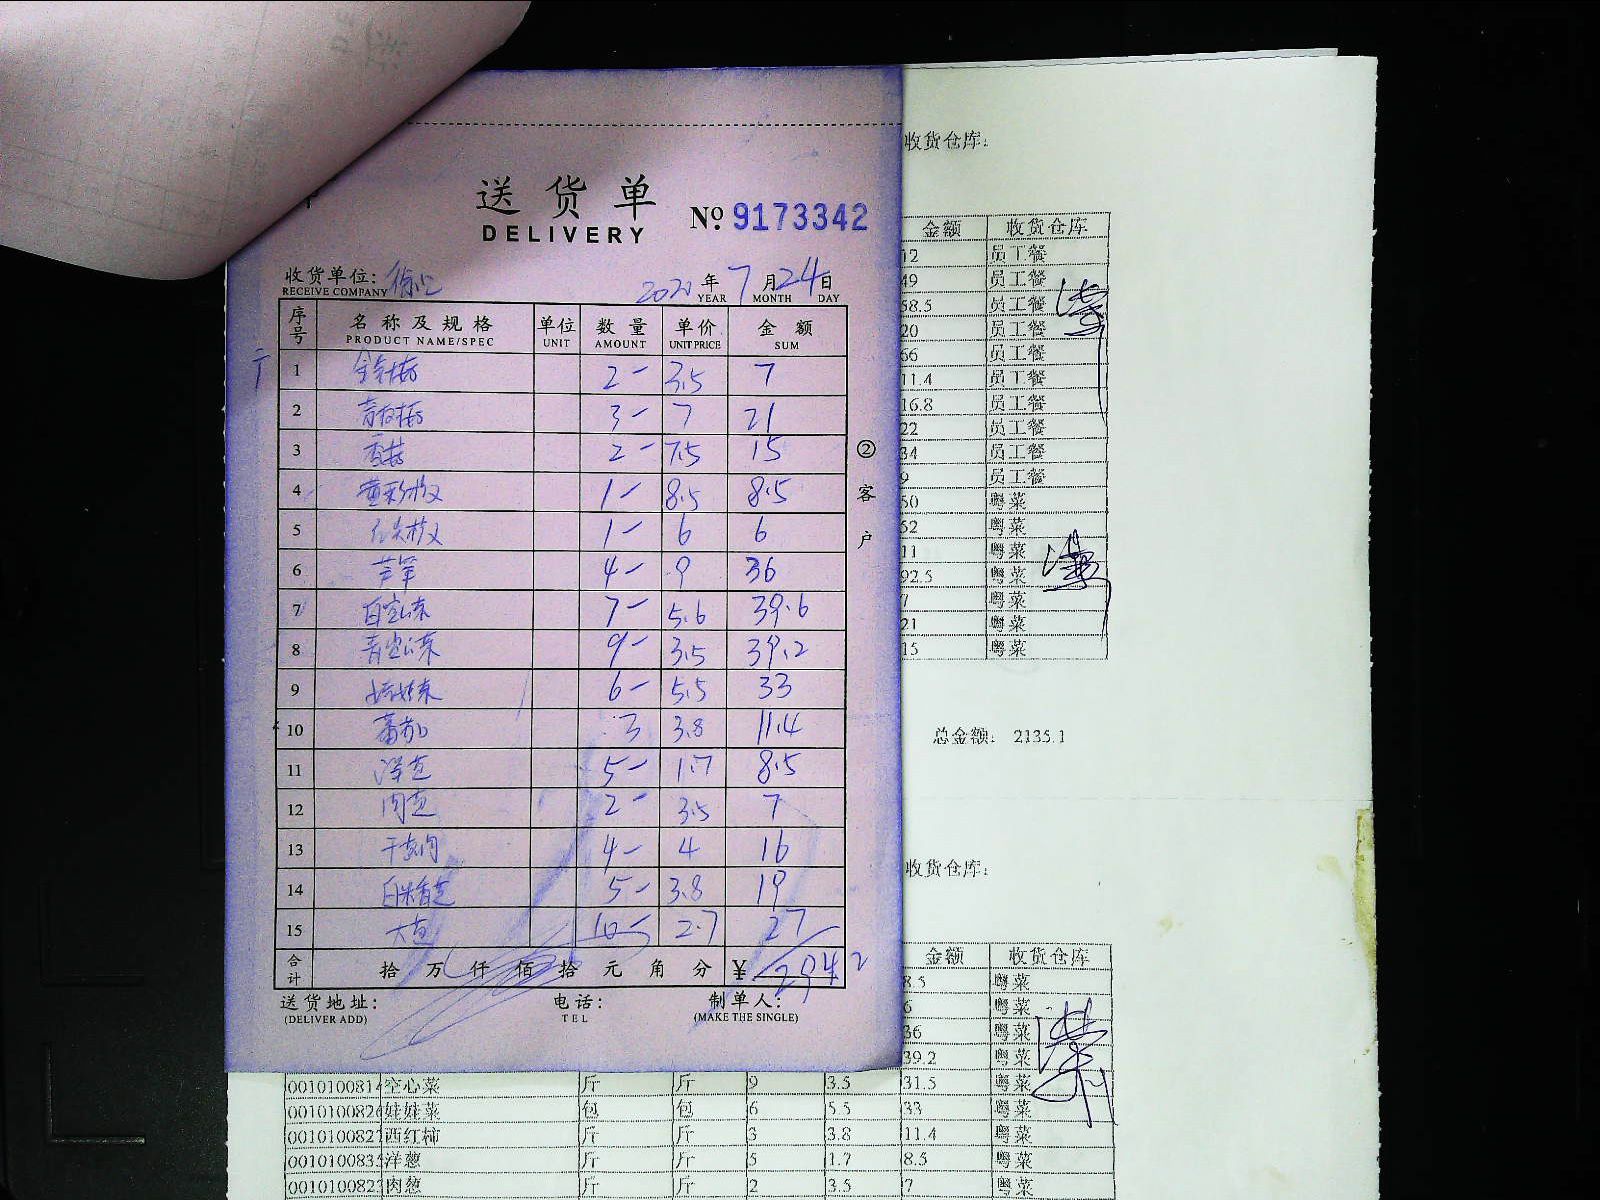 送货单
DELIVERY
№ 9173342
收货单位:
RECEIVE COMPANY
2020 年 7 月 24 日
YEAR MONTH DAY
序号 名称及规格 单位 数量 单价 金额
PRODUCT NAME/SPEC UNIT AMOUNT UNIT PRICE SUM
1 2- 3.5 7
2 3- 7 21
3 香菇 2- 7.5 15
4 1- 8.5 8.5
5 1- 6 6
6 芦笋 4- 9 36
7 白空心菜 7- 5.6 39.6
8 青空心菜 9- 3.5 39.2
9 娃娃菜 6- 5.5 33
10 蕃茄 3 3.8 11.4
11 洋葱 5- 1.7 8.5
12 肉葱 2- 3.5 7
13 4- 4 16
14 5- 3.8 19
15 大葱 10- 2.7 27
合计 拾 万 仟 佰 拾 元 角 分 ¥ 294.2
送货地址: 电话: 制单人:
(DELIVER ADD) TEL (MAKE THE SINGLE)
②客户
收货仓库:
金额 收货仓库
12 员工餐
49 员工餐
58.5 员工餐
20 员工餐
66 员工餐
11.4 员工餐
16.8 员工餐
22 员工餐
34 员工餐
9 员工餐
50 粤菜
52 粤菜
11 粤菜
92.5 粤菜
7 粤菜
21 粤菜
15 粤菜
总金额: 2135.1
收货仓库:
金额 收货仓库
8.5 粤菜
6 粤菜
36 粤菜
39.2 粤菜
001010081 空心菜 斤 斤 9 3.5 31.5 粤菜
001010082 娃娃菜 包 包 6 5.5 33 粤菜
001010082 西红柿 斤 斤 3 3.8 11.4 粤菜
001010083 洋葱 斤 斤 5 1.7 8.5 粤菜
001010082 肉葱 斤 斤 2 3.5 7 粤菜